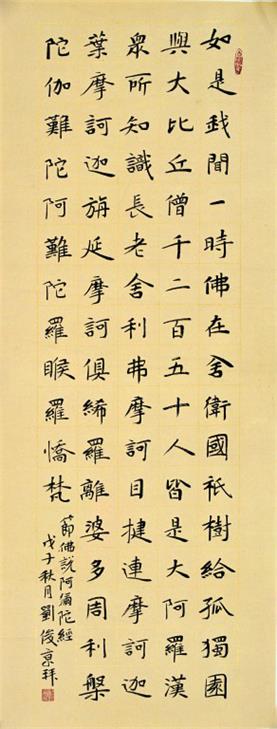 如是我聞一時佛在舍衛國祇樹給孤獨園
與大比丘僧千二百五十人皆是大阿羅漢
衆所知識長老舍利弗摩訶目揵連摩訶迦
葉摩訶迦旃延摩訶俱絺羅離婆多周利槃
陀伽難陀阿難陀羅睺羅憍梵
節佛說阿彌陀經
戊子秋月劉俊京拜